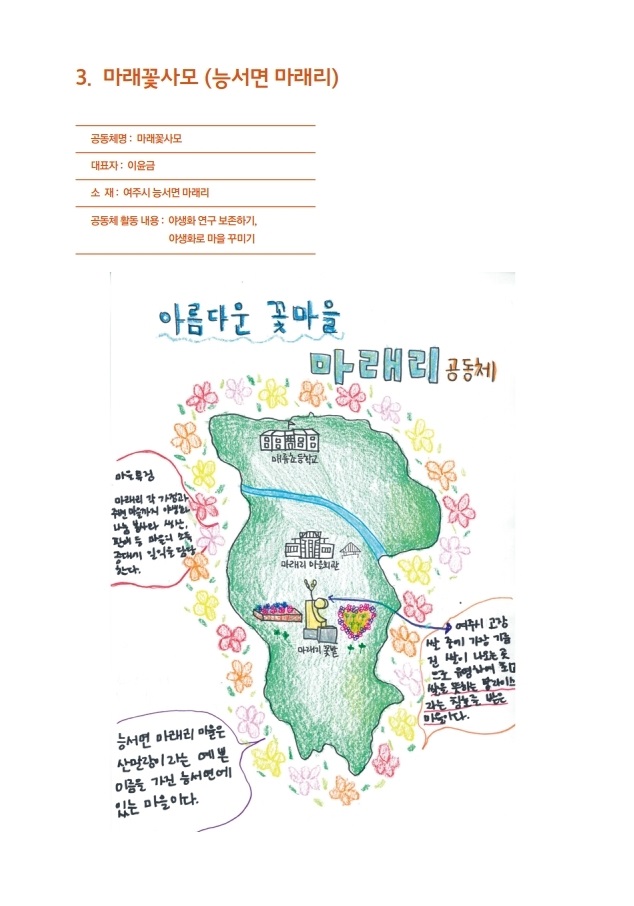 3. 마래꽃사모 (능서면 마래리)
공동체명 : 마래꽃사모
대표자 : 이윤금
소 재 : 여주시 능서면 마래리
공동체 활동 내용 : 야생화 연구 보존하기,
야생화로 마을 꾸미기
아름다운 꽃마을
마래리 공동체
매류초등학교
마을특징
마래리 각 가정과
주변 마을까지 야생화
나눔 봉사와 생산,
판매 등 마을의 소득
증대에 일익을 담당
한다.
마래리 마을회관
마래리 꽃밭
여주시 고장
쌀 중에 가장 기름
진 쌀이 나오는 곳
으로 유명하여
쌀을 뜻하는
라는 칭호를 받은
마을이다.
능서면 마래리 마을은
산말랑이 라는 예쁜
이름을 가진 능서면에
있는 마을이다.